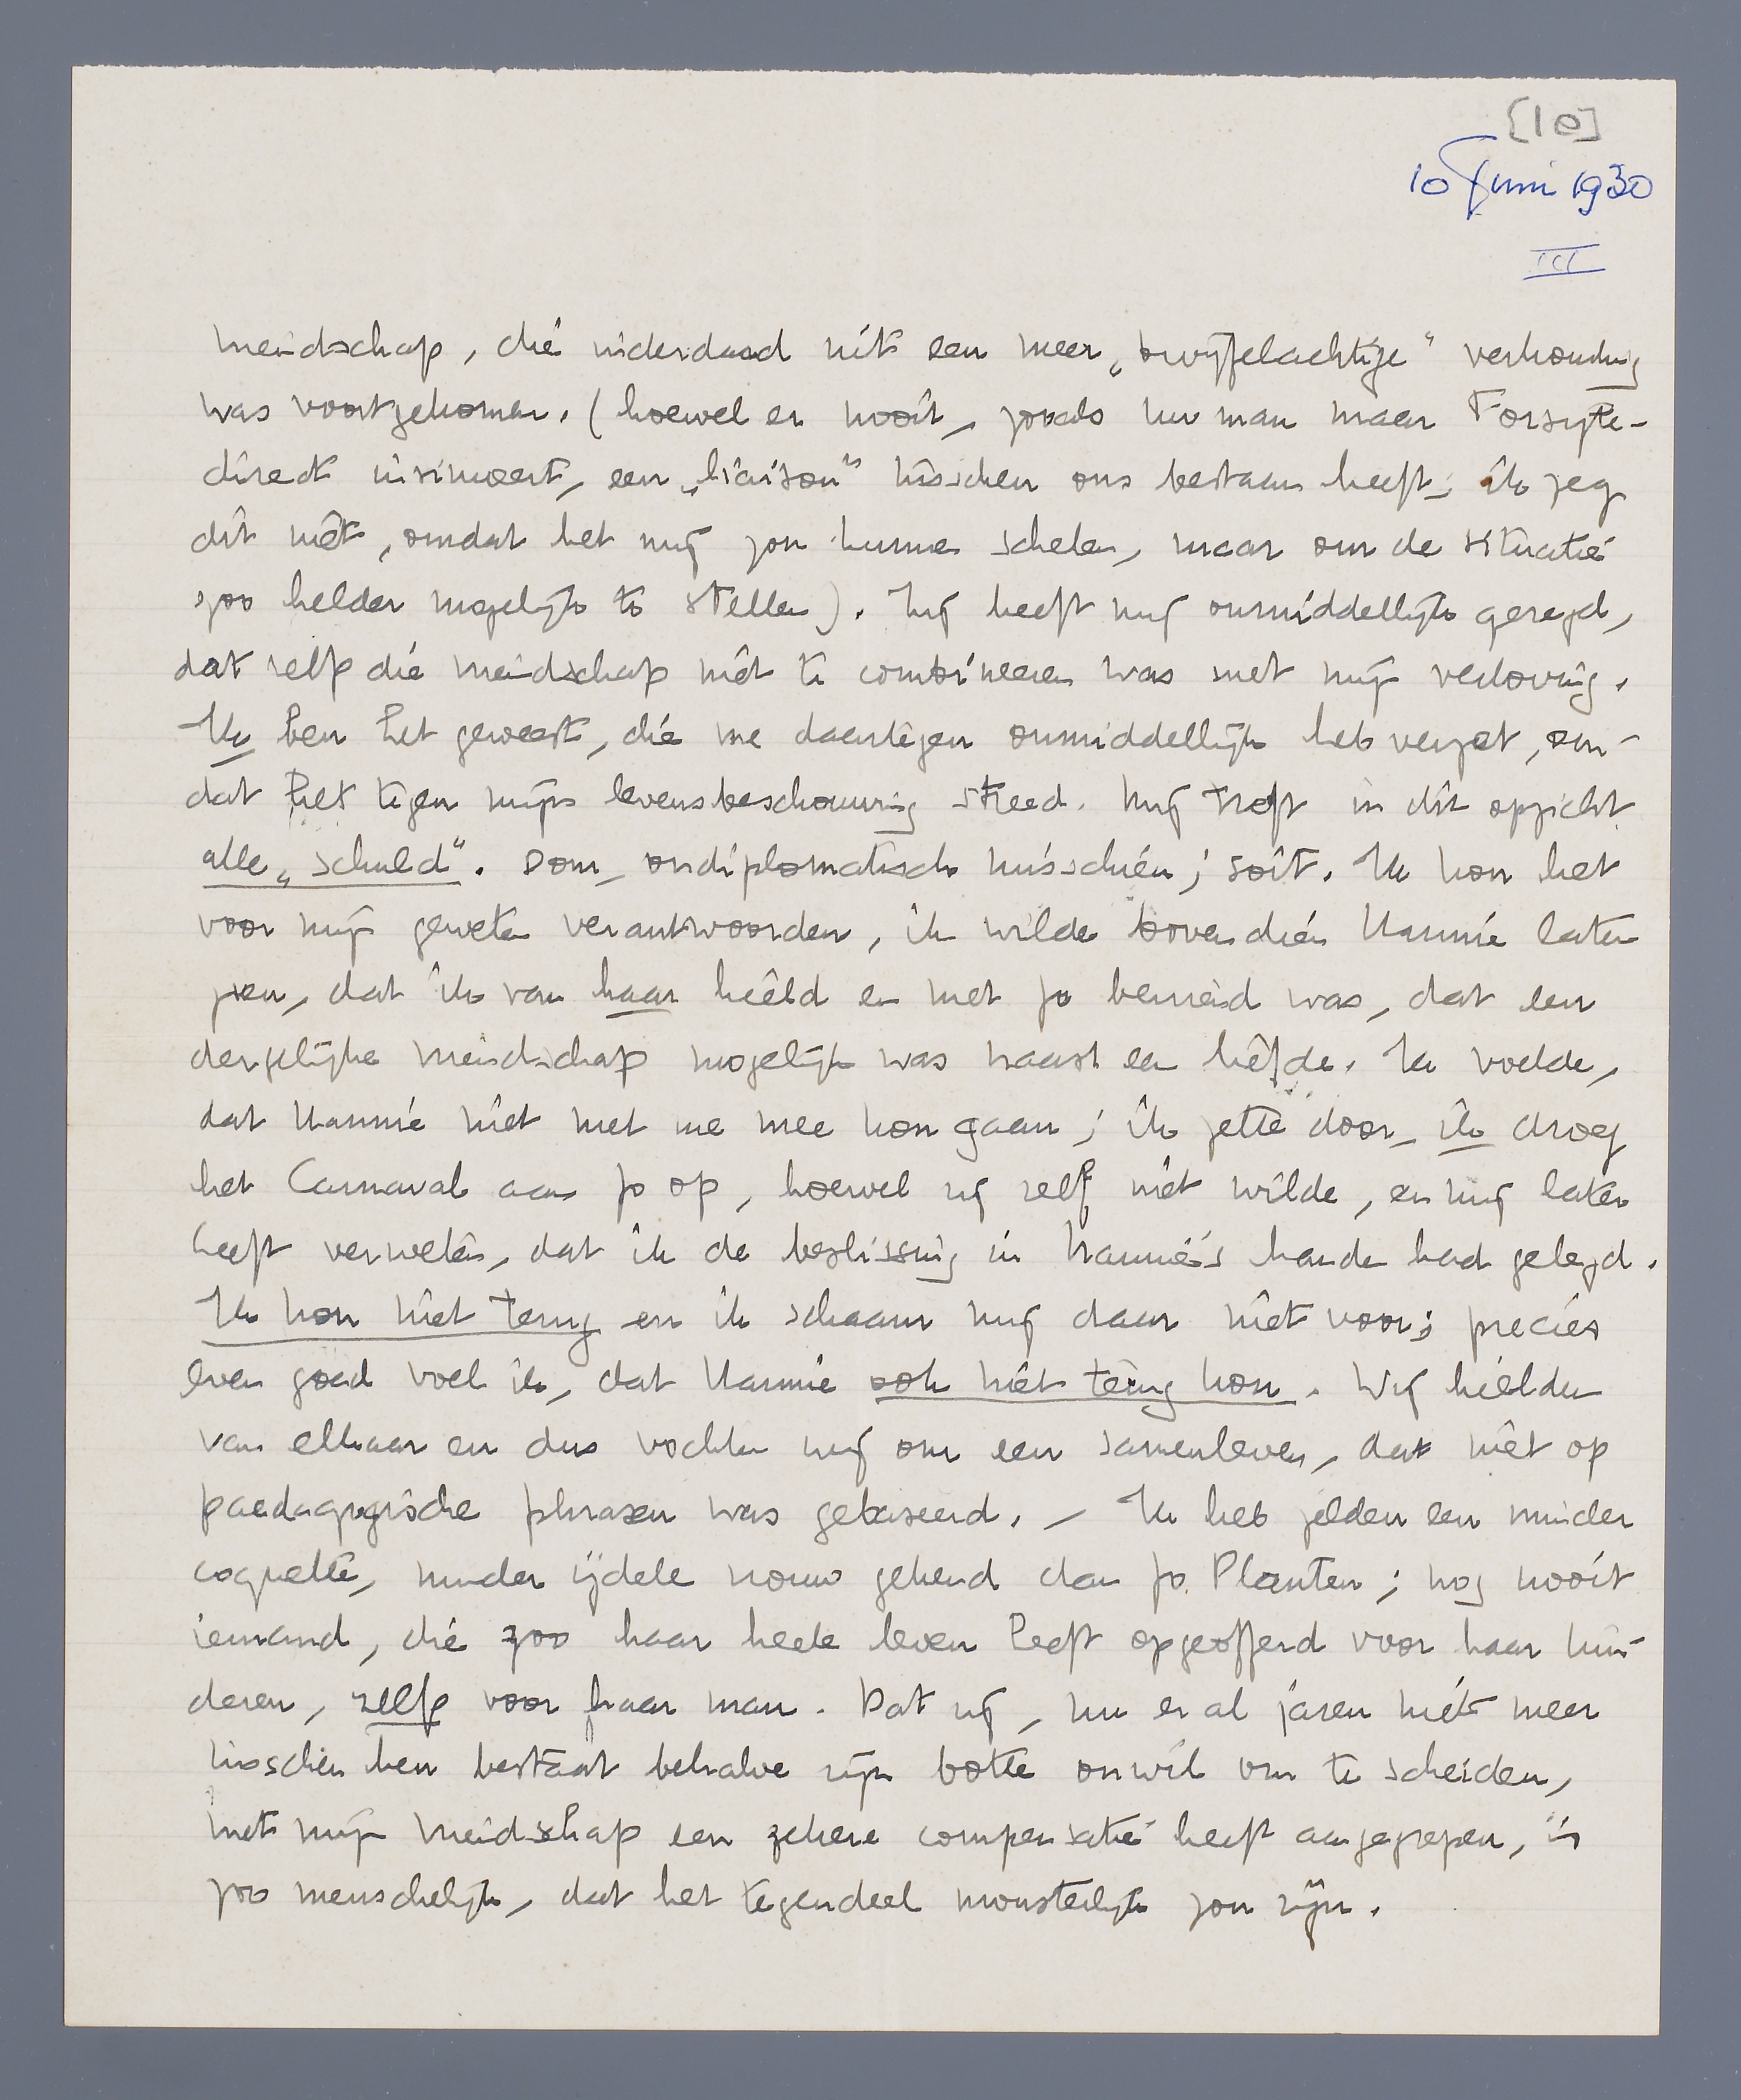 [10]
10 Juni 1930
III
vriendschap, die inderdaad uit een meer „twijfelachtige" verhouding
was voortgekomen. (hoewel er nooit, zooals uw man maar Forsyte-
direct insinueert, een „liaison" tusschen ons bestaan heeft; ik zeg
dit niet, omdat het mij zou kunnen schelen, maar om de situatie
zoo helder mogelijk te stellen). Zij heeft mij onmiddellijk gezegd,
dat zelfs die vriendschap niet te combineeren was met mijn verloving.
Ik ben het geweest, die me daartegen onmiddellijk heb verzet, om-
dat het tegen mijn levensbeschouwing streed. Mij treft in dit opzicht
alle „schuld". Dom, ondiplomatisch misschien; soit. Ik kon het
voor mijn geweten verantwoorden, ik wilde bovendien Hannie laten
zien, dat ik van haar hield en met Jo bevriend was, dat een
dergelijke vriendschap mogelijk was naast een liefde. Ik voelde,
dat Hannie niet met me mee kon gaan; ik zette door, ik droeg
het Carnaval aan Jo op, hoewel zij zelf niet wilde, en mij later
heeft verweten, dat ik de beslissing in Hannie's handen had gelegd.
Ik kon niet terug en ik schaam mij daar niet voor; precies
even goed voel ik, dat Hannie ook niet terug kon. Wij hielden
van elkaar en dus vochten wij om een samenleven, dat niet op
paedagogische phrasen was gebaseerd. – Ik heb zelden een minder
coquette, minder ijdele vrouw gekend dan Jo Planten; nog nooit
iemand, die zoo haar heele leven heeft opgeofferd voor haar kin-
deren, zelfs voor haar man. Dat zij, nu er al jaren niets meer
tusschen hen bestaat behalve zijn botte onwil om te scheiden,
met mijn vriendschap een zekere compensatie heeft aangegrepen, is
zoo menschelijk, dat het tegendeel monsterlijk zou zijn.